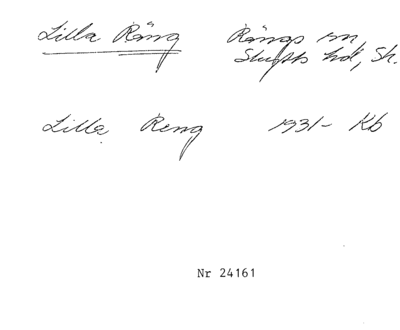 Lilla Räng Rängs sn,
Skytts hd, Sk.
Lilla Reng 1931- Kb
Nr 24161